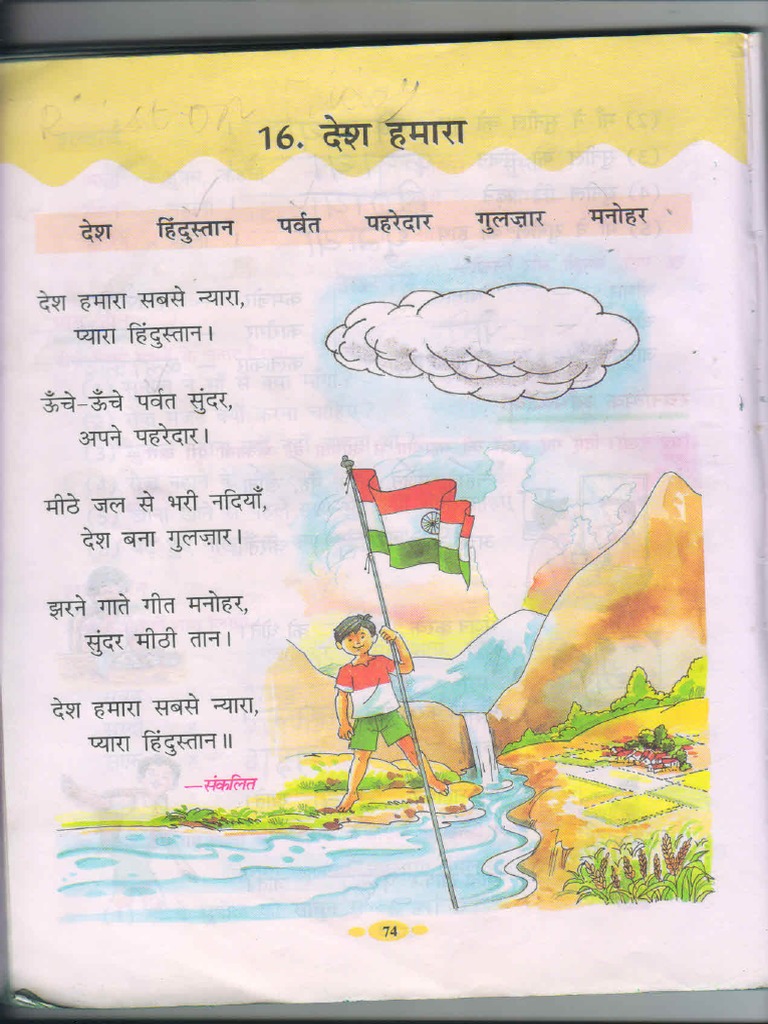 16. देश हमारा
देश हिंदुस्तान पर्वत पहरेदार गुलज़ार मनोहर
देश हमारा सबसे न्यारा,
प्यारा हिंदुस्तान।
ऊँचे-ऊँचे पर्वत सुंदर,
अपने पहरेदार।
मीठे जल से भरी नदियाँ,
देश बना गुलज़ार।
झरने गाते गीत मनोहर,
सुंदर मीठी तान।
देश हमारा सबसे न्यारा,
प्यारा हिंदुस्तान॥
—संकलित
74